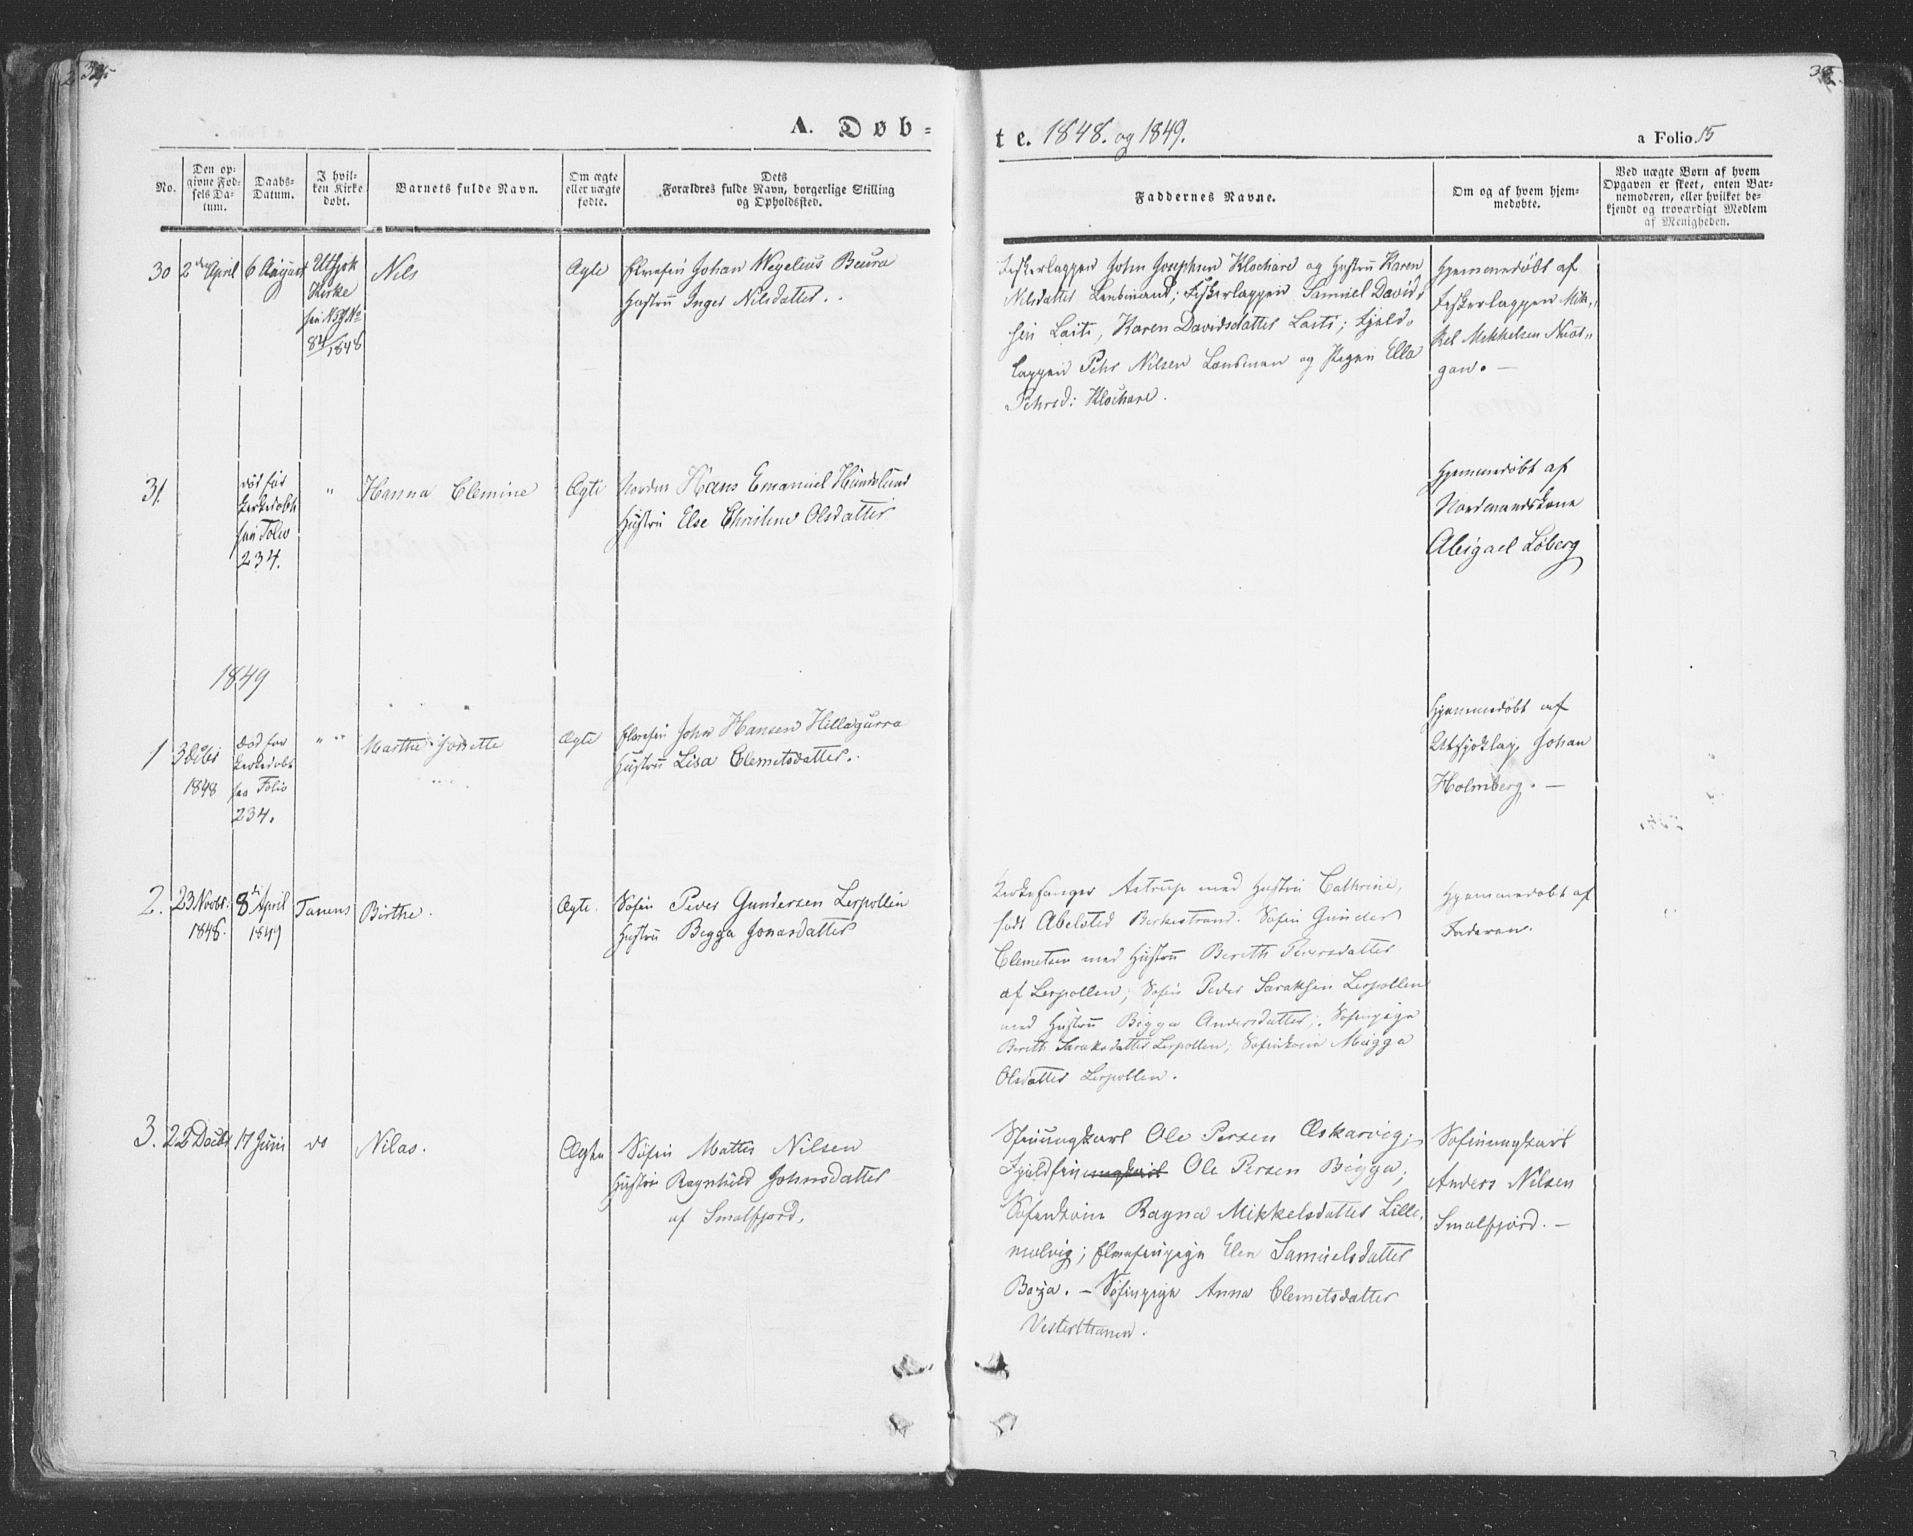 A. Døb-
te. 1848. og 1849.
a Folio 15
No.
Den op-
givne Fød-
sels Da-
tum.
Daabs-
Datum.
I hvil-
ken Kirke
døbt.
Barnets fulde Navn.
Om ægte
eller uægte
fødte.
Dets
Forældres fulde Navn, borgerlige Stilling
og Opholdssted.
Faddernes Navne.
Om og af hvem hjem-
medøbte.
Ved uægte Børn af hvem
Opgaven er skeet, enten Bar-
nemoderen, eller hvilket be-
kjendt og troværdigt Medlem
af Menigheden.
30
2den April
6 August
Utsjok
Kirke
84/1848
Nils
Ægte
Elvefin Johan Wegelius Beura
Hustru Inger Nilsdatter.
Fiskerlappen John Josephsen Klochare og Hustru Karen
Nilsdatter Lensmand; Fiskerlappen Samuel David-
sen Laiti, Karen Davidsdatter Laiti; Fjeld-
lappen Pehr Nilsen Lensman og Pigen Ella
Pehrsd: Klochare.
Hjemmedøbt af
Fiskerlappen Mik-
kel Mikkelsen
gan. —
31.
død før
Kirkedaab
see Folio
234.
"
Hanna Clemine
Ægte
Nordm Hans Emanuel Hundslund
Hustru Else Christine Olsdatter
Hjemmedøbt af
Nordmandskone
Abigael Løberg
1849
1
3 Decbr
1848
Død før
Kirkedaab
see Folio
234.
" "
Marthe Josette
Ægte
Elvefin John Hansen Hillagurra
Hustru Lisa Clemetsdatter.
Hjemmedøbt af
Utsjoklap Johan
Holmberg. —
2.
23 Novbr.
1848.
8de April
1849
Tanens
Birthe.
Ægte.
Søfin Peder Gundersen Lerpollen
Hustru Bigga Jonasdatter
Kirkesanger Astrup med Hustru Cathrine,
født Abelsted Berkestrand. Søfin Gunder
Clemetsen med Hustru Berith Pedersdatter
af Lerpollen; Søfin Peder Saraksen Lerpollen
med Hustru Bigga Andersdatter; Søfinpige
Berith Saraksdatter Lerpollen; Søfinkone Magga
Olsdatter Lerpollen.
Hjemmedøbt af
Faderen.
3.
22 Decbr
17 Juni
do
Nilas.
Ægte
Søfin Mattis Nilsen
Hustru Ragnhild Johnsdatter
af Smalfjord.
Sfinungkarl Ole Persen Æskarvig;
Fjeldfinungkarl Ole Persen Bigga;
Søfinkone Ragna Mikkelsdatter Lille-
molvig; Elvefinpige Elen Samuelsdatter
Boija. — Søfinpige Anna Clemetsdatter
Vestertanen.
Søfinungkarl
Anders Nilsen
Smalfjord. —